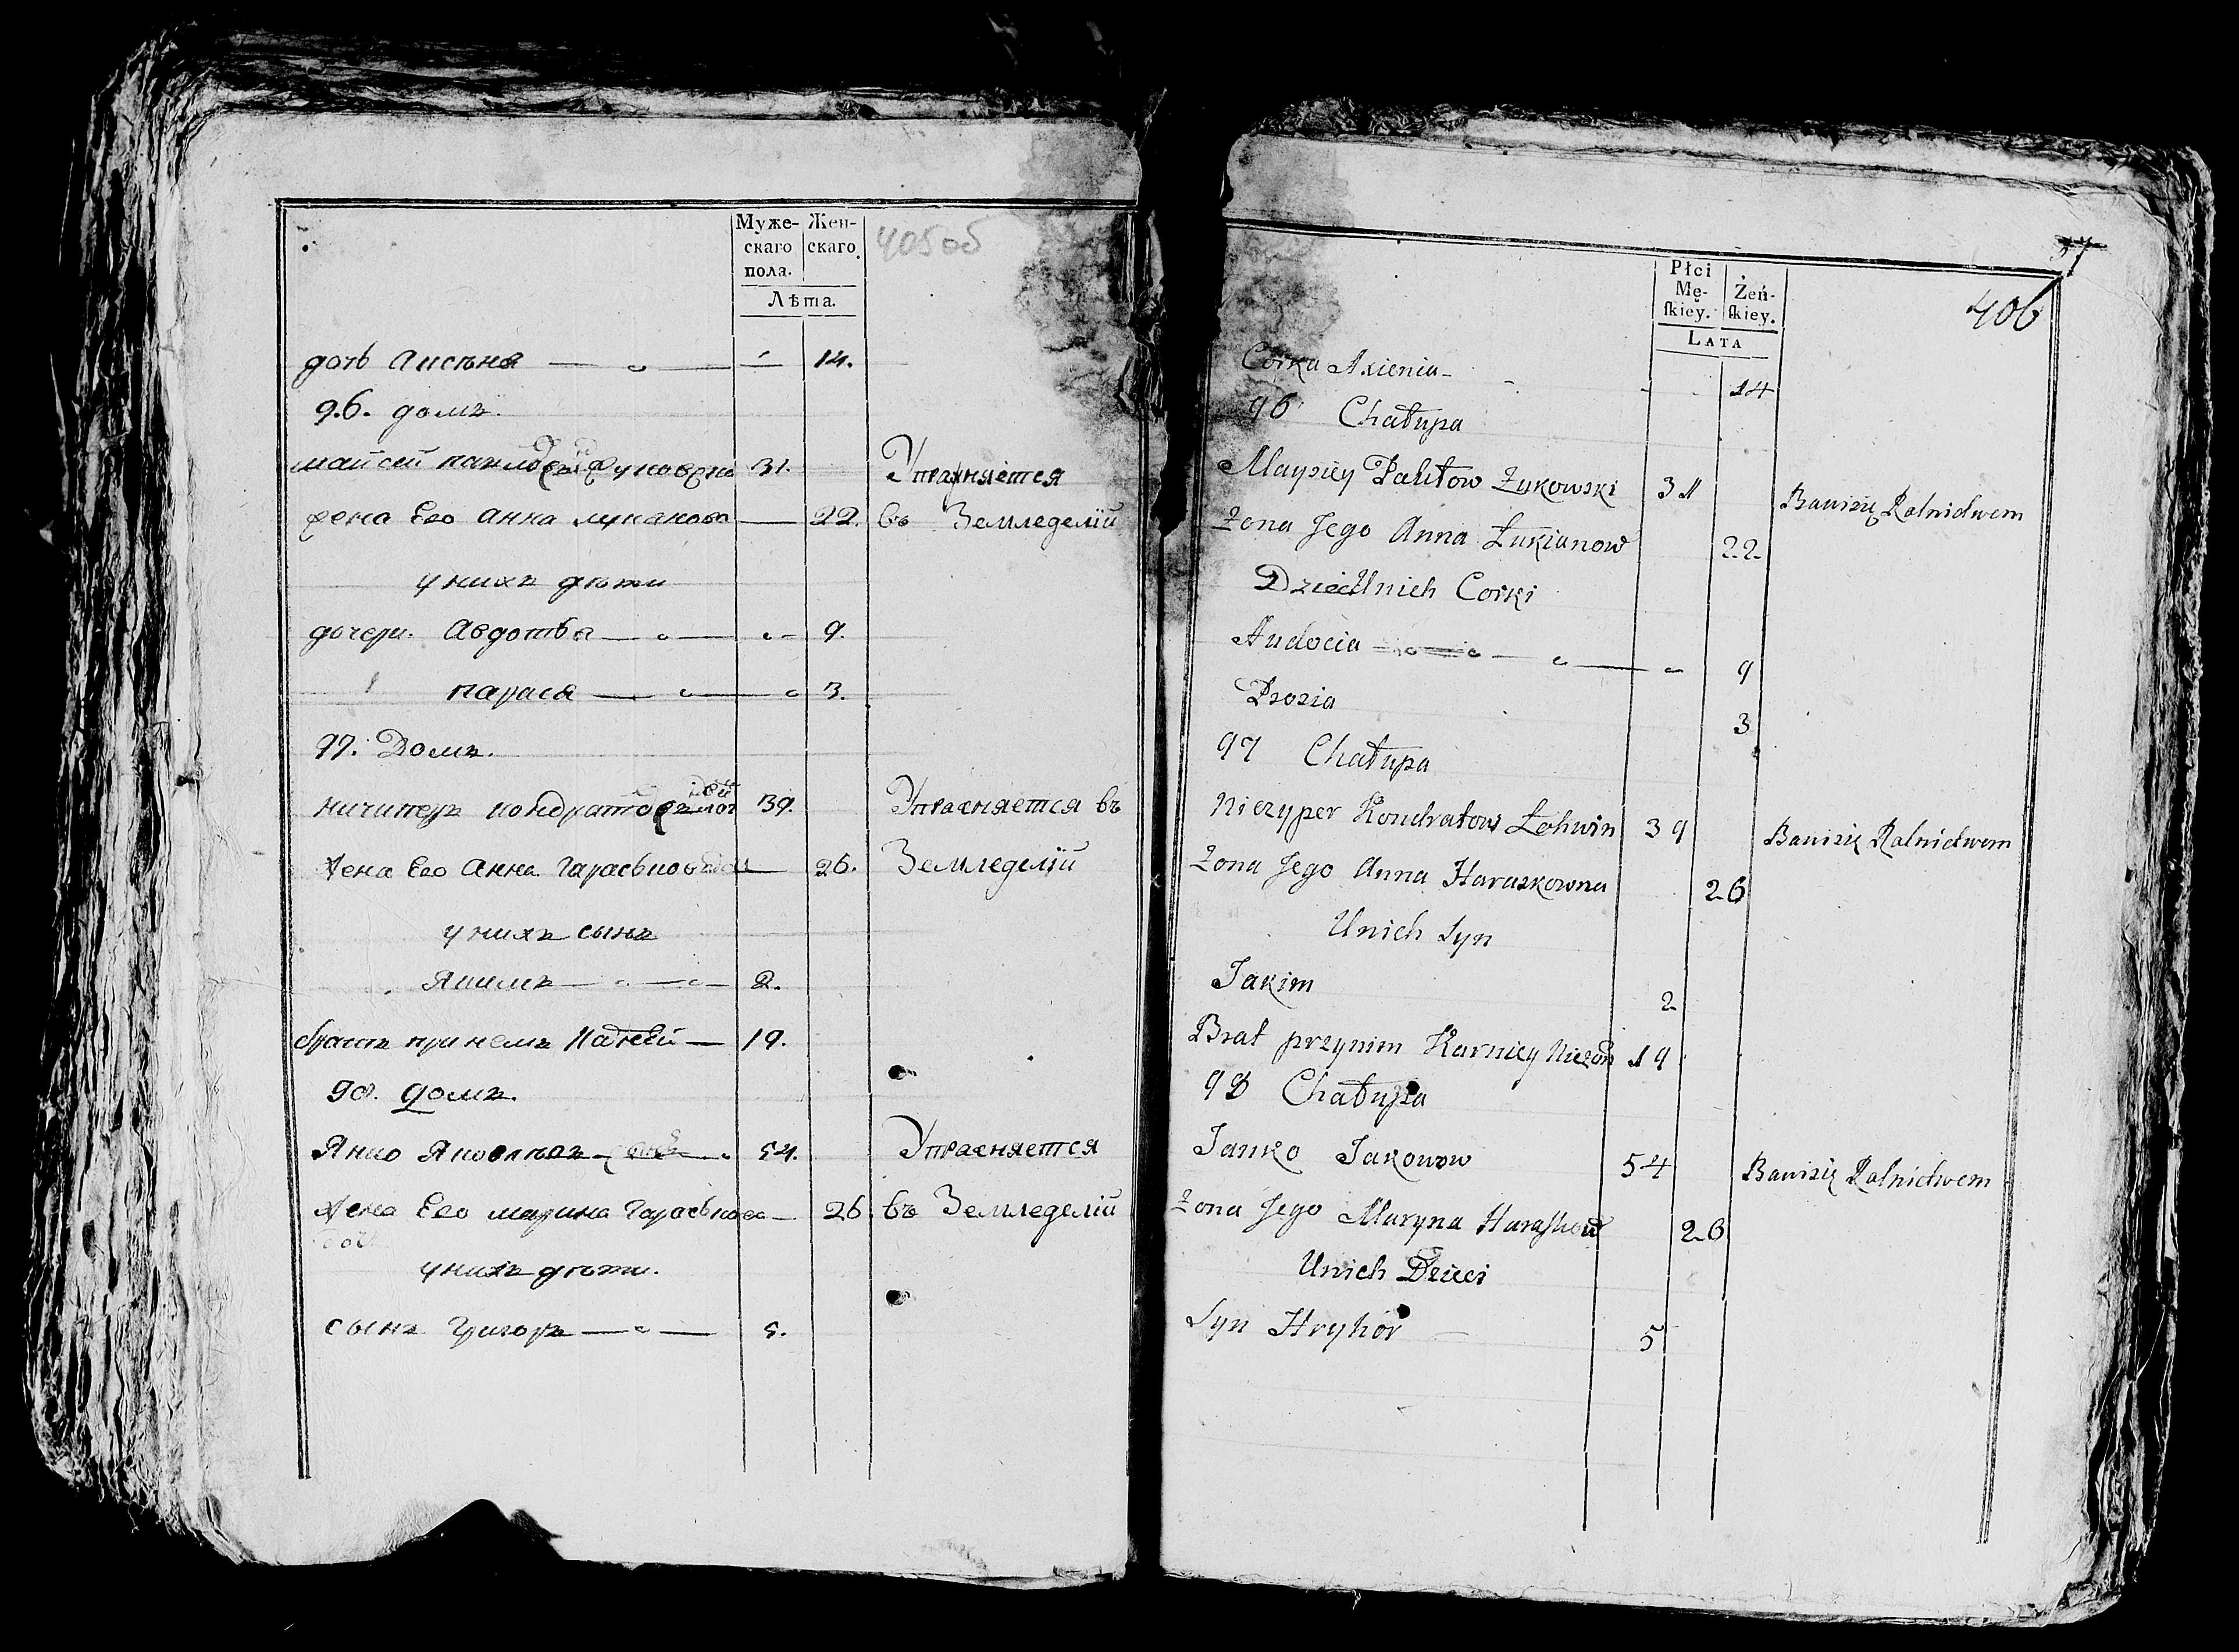 Муже-
скаго
пола.
Жен-
скаго.
405об
Лѣта.
дочь Аксѣня 14.
96. домъ.
майсей павловъ Жуковски 31. Упражняется
жена Его Анна лукянова 22. въ Земледелїи
у нихъ дѣти
дочери. Авдотья 9.
парася 3.
97. Домъ.
ничиперъ кондратовъ 39. Упражняется въ
жена Его Анна Гараськов 26. Земледелїи
у нихъ сынъ
Якимъ 2.
братъ при немъ 19.
98. домъ.
Янко Яковлевъ 54. Упражняется
жена Его марина Гараськова 26. въ Земледелїи
у нихъ дѣти.
сынъ Григоръ 5.
37
Płci
Mę-
ſkiey.
Żeń-
ſkiey.
406
LATA
Corka Axienia 14
96 Chałupa
Maysiey Pawłow Żukowski 31 Bawisię Rolnictwem
Żona Jego Anna Łukianow 22
Dzieci Unich Corki
Audocia 9
Prosia 3
97 Chałupa
Niczyper Kondratow Łohwin 39 Bawisię Rolnictwem
Żona Jego Anna Haraskowna 26
Unich Syn
Jakim 2
Brat przynim Karniey 19
98 Chałupa
Janko Jakowow 54 Bawisię Rolnictwem
Żona Jego Maryna Haraſkow 26
Unich Dzieci
Syn Hryhor 5